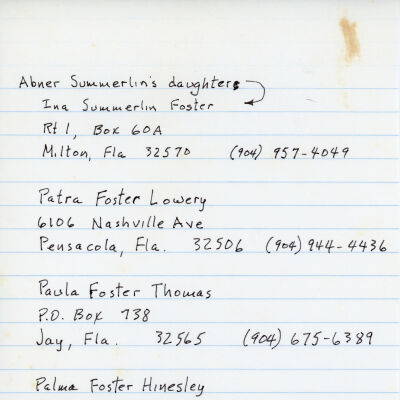 Abner Summerlin's daughters
Ina Summerlin Foster
Rt 1, Box 60A
Milton, Fla 32570 (904) 957-4049
Patra Foster Lowery
6106 Nashville Ave
Pensacola, Fla. 32506 (904) 944-4436
Paula Foster Thomas
P.O. Box 738
Jay, Fla. 32565 (904) 675-6389
Palma Foster Hinesley